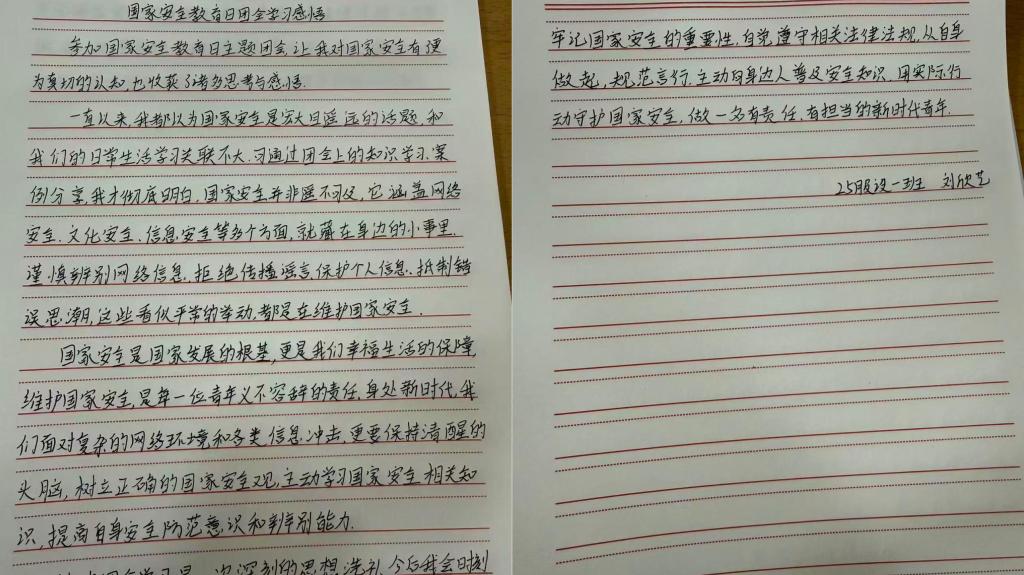 国家安全教育日团会学习感悟
参加国家安全教育日主题团会,让我对国家安全有更
为真切的认知,也收获了诸多思考与感悟.
一直以来,我都以为国家安全是宏大且遥远的话题,和
我们的日常生活学习关联不大.可通过团会上的知识学习、案
例分享,我才彻底明白,国家安全并非遥不可及,它涵盖网络
安全、文化安全、信息安全等多个方面,就藏在身边的小事里.
谨慎辨别网络信息、拒绝传播谣言、保护个人信息、抵制错
误思潮,这些看似平常的举动,都是在维护国家安全.
国家安全是国家发展的根基,更是我们幸福生活的保障,
维护国家安全,是每一位青年义不容辞的责任.身处新时代,我
们面对复杂的网络环境和各类信息冲击,更要保持清醒的
头脑,树立正确的国家安全观,主动学习国家安全相关知
识,提高自身安全防范意识和辨别能力.
团会学习是一次深刻的思想洗礼,今后我会时刻
牢记国家安全的重要性,自觉遵守相关法律法规,从自身
做起,规范言行,主动向身边人普及安全知识,用实际行
动守护国家安全,做一名有责任、有担当的新时代青年.
25服设一班 刘欣艺